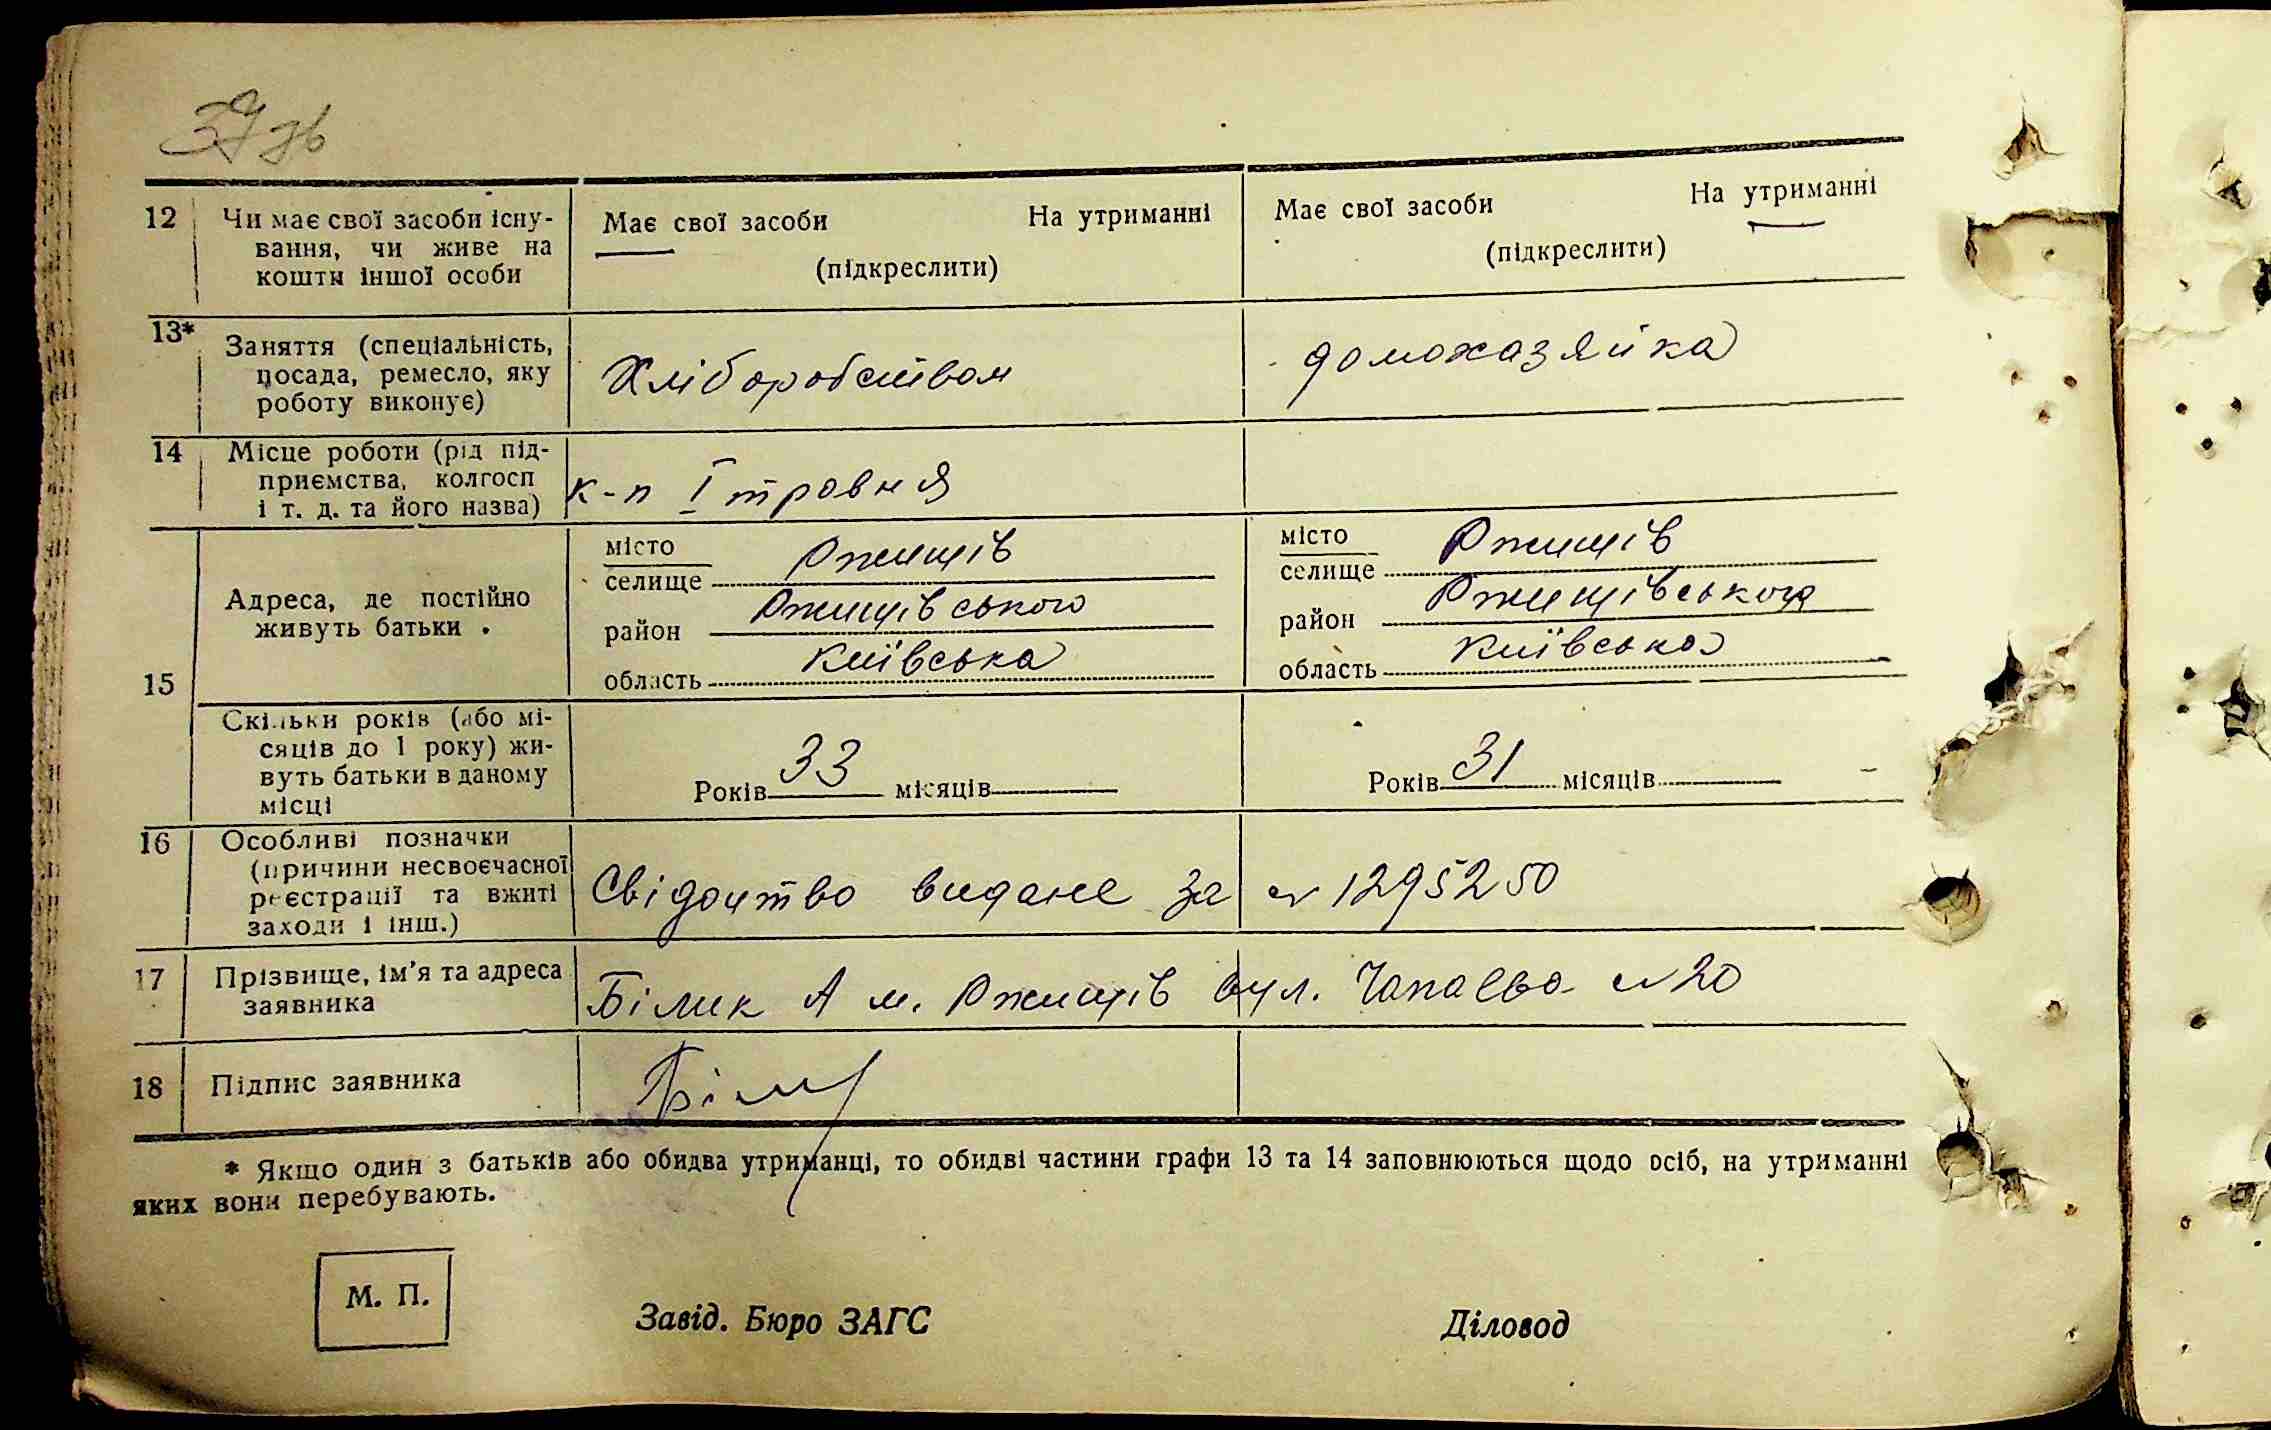 37 зв
12 Чи має свої засоби існу- Має свої засоби На утриманні Має свої засоби На утриманні
вання, чи живе на (підкреслити) (підкреслити)
кошти іншої особи
13* Заняття (спеціальність, Хліборобством домохазяйка
посада, ремесло, яку
роботу виконує)
14 Місце роботи (рід під- к-п І травня
приємства, колгосп
і т. д. та його назва)
15 Адреса, де постійно
живуть батьки.
місто Ржищів місто Ржищів
селище селище
район Ржищівського район Ржищівського
область Київська область Київська
Скільки років (або мі-
сяців до 1 року) жи-
вуть батьки в даному
місці
Років 33 місяців Років 31 місяців
16 Особливі позначки
(причини несвоєчасної
реєстрації та вжиті
заходи і інш.)
Свідоцтво видане за № 1295250
17 Прізвище, ім'я та адреса
заявника
Білик А м. Ржищів вул. Чапаєва № 20
18 Підпис заявника Біл
* Якщо один з батьків або обидва утриманці, то обидві частини графи 13 та 14 заповнюються щодо осіб, на утриманні
яких вони перебувають.
М. П.
Завід. Бюро ЗАГС Діловод